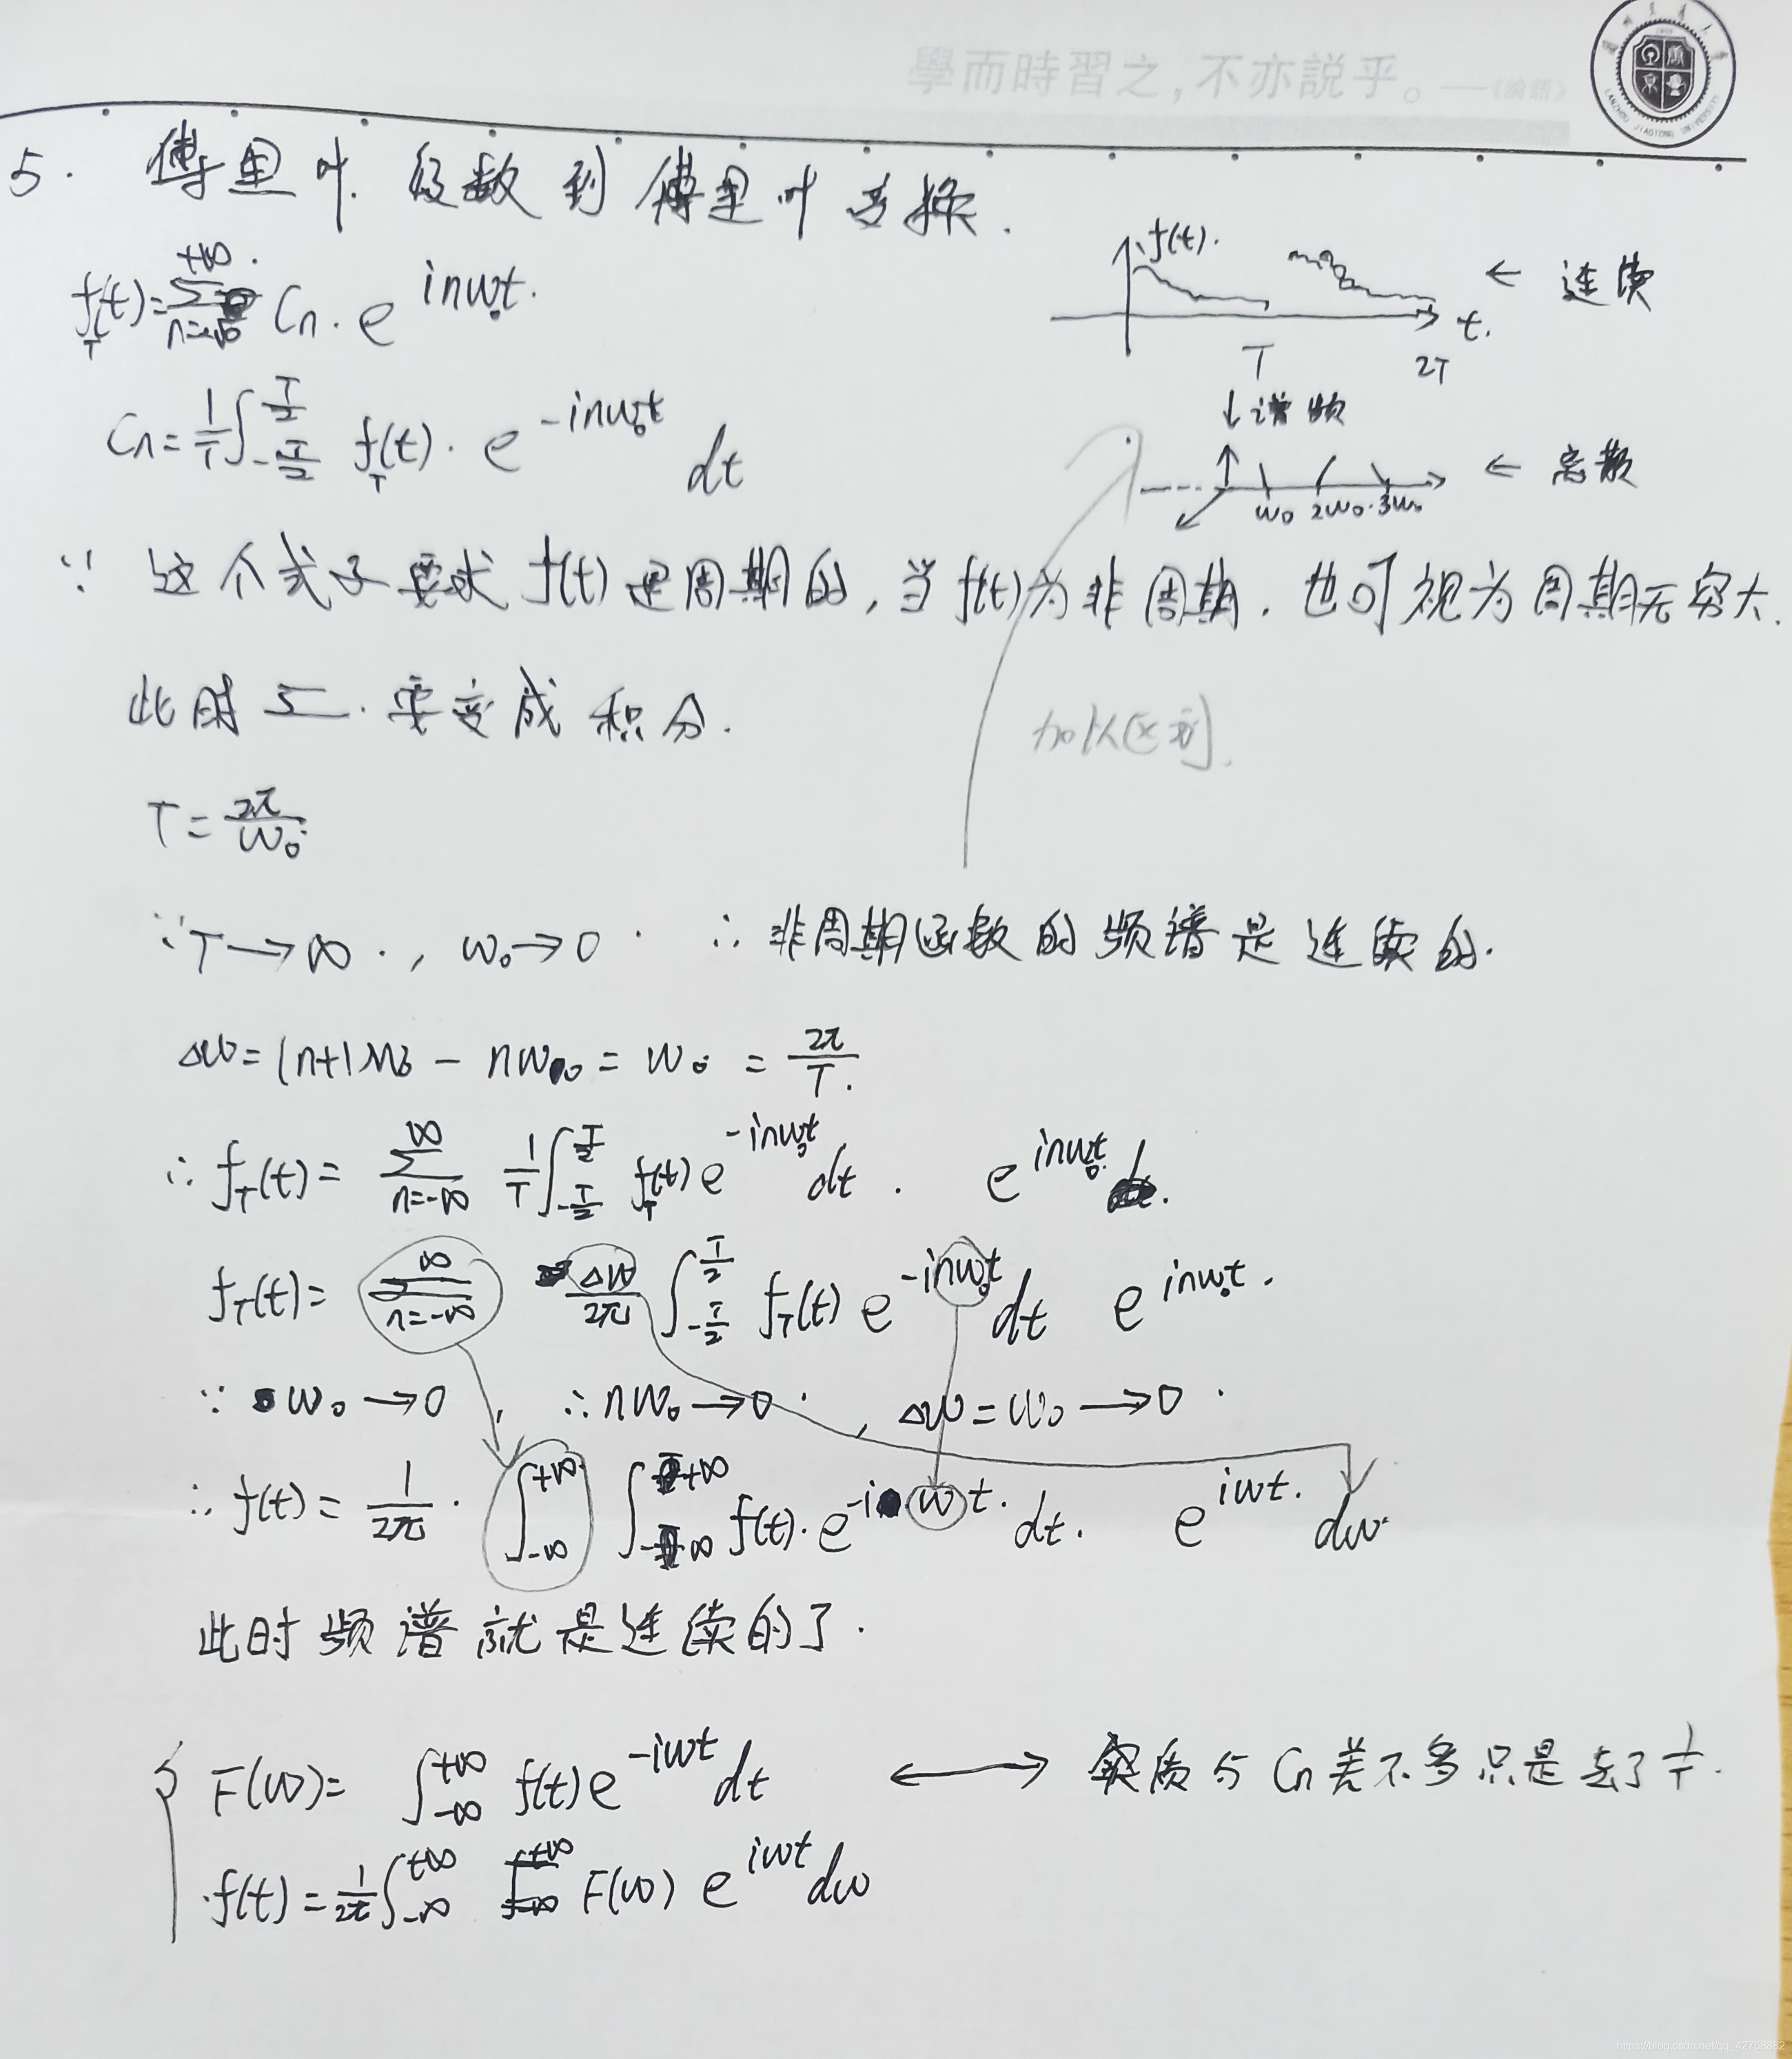 學而時習之，不亦説乎。——《論語》
LANZHOU JIAOTONG UNIVERSITY
5. 傅里叶级数到傅里叶变换.
f_T(t)=∑_{n=-∞}^{+∞} Cn·e^{inω₀t}.
f(t).
← 连续
t.
T
2T
↓谱频
Cn=1/T∫_{-T/2}^{T/2} f_T(t)·e^{-inω₀t} dt
← 离散
ω₀ 2ω₀ 3ω₀
∵ 这个式子要求f(t)是周期的，当f(t)为非周期，也可视为周期无穷大.
此时∑.要变成积分.
加以区别.
T=2π/ω₀
∵T→∞.，ω₀→0 ∴非周期函数的频谱是连续的.
Δω=(n+1)ω₀-nω₀=ω₀=2π/T.
∴f_T(t)=∑_{n=-∞}^{∞} 1/T∫_{-T/2}^{T/2} f_T(t)e^{-inω₀t}dt. e^{inω₀t}.
f_T(t)=∑_{n=-∞}^{∞} Δω/2π ∫_{-T/2}^{T/2} f_T(t)e^{-inω₀t}dt e^{inω₀t}.
∵ω₀→0，∴nω₀→0，Δω=ω₀→0.
∴f(t)=1/2π·∫_{-∞}^{+∞} ∫_{-∞}^{+∞} f(t)·e^{-iωt}·dt. e^{iωt}.dω.
此时频谱就是连续的了.
F(ω)=∫_{-∞}^{+∞} f(t)e^{-iωt}dt ←→ 实质与Cn差不多只是去了1/T.
f(t)=1/2π∫_{-∞}^{+∞} F(ω)e^{iωt}dω
https://blog.csdn.net/qq_42758882